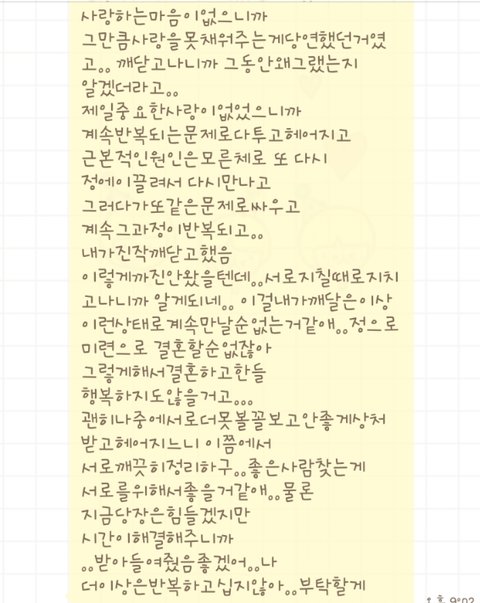 사랑하는마음이없으니까
그만큼사랑을못채워주는게당연했던거였
고。。깨닫고나니까 그동안왜그랬는지
알겠더라고。。
제일중요한사랑이없었으니까
계속반복되는문제로다투고헤어지고
근본적인원인은모른체로 또 다시
정에이끌려서 다시만나고
그러다가또같은문제로싸우고
계속그과정이반복되고。。
내가진작깨닫고했음
이렇게까진안왔을텐데。。서로지칠때로지치
고나니까 알게되네。。 이걸내가깨달은이상
이런상태로계속만날순없는거같애。。정으로
미련으로 결혼할순없잖아
그렇게해서결혼하고한들
행복하지도않을거고。。。
괜히나중에서로더못볼꼴보고안좋게상처
받고헤어지느니 이쯤에서
서로깨끗히정리하구。。좋은사람찾는게
서로를위해서좋을거같애。。물론
지금당장은힘들겠지만
시간이해결해주니까
。。받아들여줬음좋겠어。。나
더이상은반복하고십지않아。。부탁할게
오후 9:02